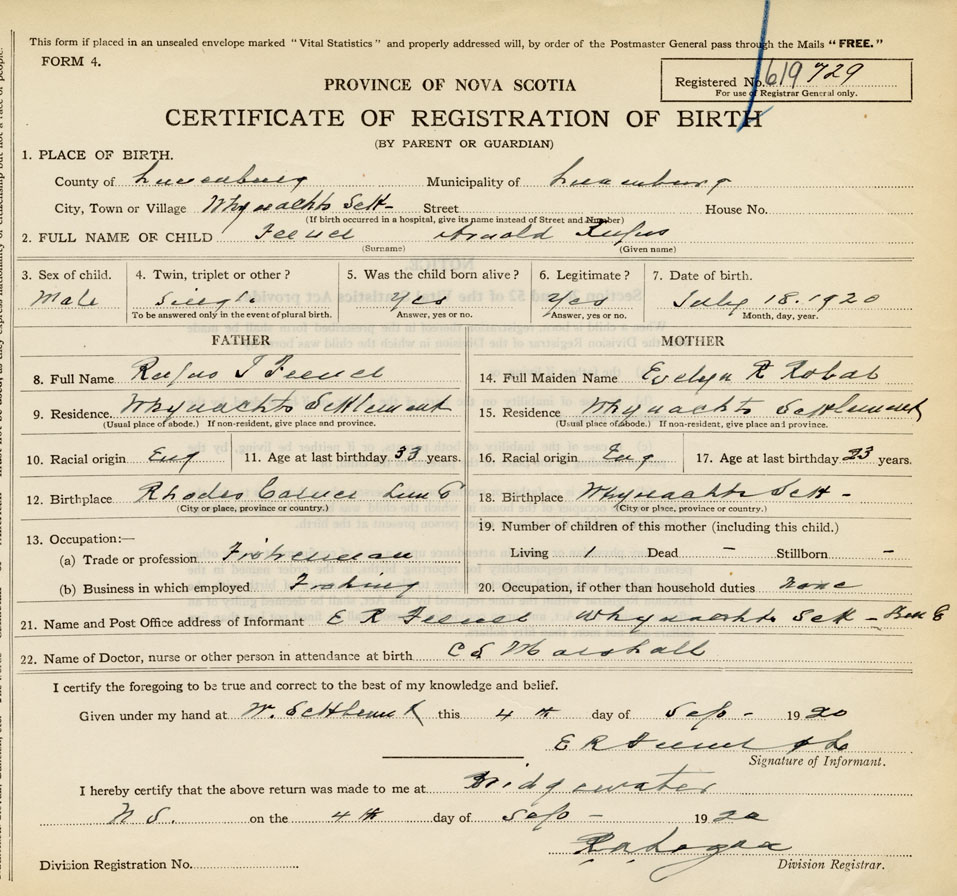 This form if placed in an unsealed envelope marked "Vital Statistics" and properly addressed will, by order of the Postmaster General pass through the Mails "FREE."
FORM 4.
Registered No. 619 729
For use of Registrar General only.
PROVINCE OF NOVA SCOTIA
CERTIFICATE OF REGISTRATION OF BIRTH
(BY PARENT OR GUARDIAN)
1. PLACE OF BIRTH.
County of Lunenburg Municipality of Lunenburg
City, Town or Village Whynachts Sett- Street House No.
(If birth occurred in a hospital, give its name instead of Street and Number)
2. FULL NAME OF CHILD Arnold Rufus
(Surname) (Given name)
3. Sex of child. 4. Twin, triplet or other? 5. Was the child born alive? 6. Legitimate? 7. Date of birth.
Male Single Yes Yes July 18. 1920
To be answered only in the event of plural birth. Answer, yes or no. Answer, yes or no. Month, day, year.
FATHER MOTHER
8. Full Name Rufus 14. Full Maiden Name Evelyn R Robar
9. Residence. Whynachts Settlement 15. Residence Whynachts Settlement
(Usual place of abode.) If non-resident, give place and province. (Usual place of abode.) If non-resident, give place and province.
10. Racial origin Eng 11. Age at last birthday 33 years. 16. Racial origin Eng 17. Age at last birthday 23 years.
12. Birthplace Rhodes Corner Lun Co 18. Birthplace Whynachts Sett -
(City or place, province or country.) (City or place, province or country.)
13. Occupation:— 19. Number of children of this mother (including this child.)
(a) Trade or profession Fisherman Living 1 Dead – Stillborn –
(b) Business in which employed Fishing 20. Occupation, if other than household duties none
21. Name and Post Office address of Informant E R Whynachts Sett -
22. Name of Doctor, nurse or other person in attendance at birth Marshall
I certify the foregoing to be true and correct to the best of my knowledge and belief.
Given under my hand at W. Settlement this 4th day of Sep - 1920
E R
Signature of Informant.
I hereby certify that the above return was made to me at Bridgewater
N S. on the 4th day of Sep - 1920
Division Registration No. Division Registrar.